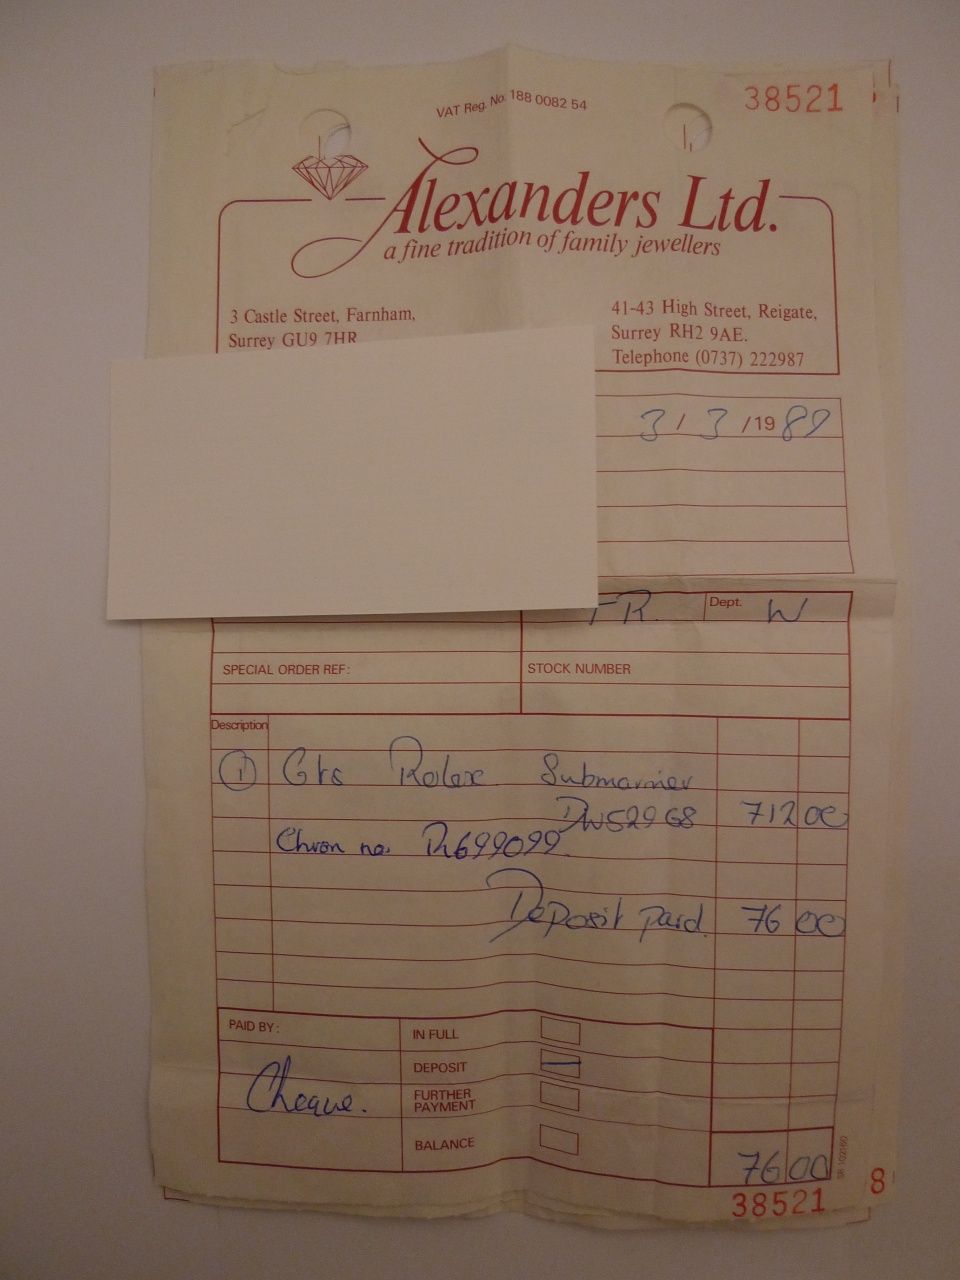 38521
VAT Reg. No. 188 0082 54
Alexanders Ltd.
a fine tradition of family jewellers
3 Castle Street, Farnham,
Surrey GU9 7HR
41-43 High Street, Reigate,
Surrey RH2 9AE.
Telephone (0737) 222987
3 / 3 / 19 89
Dept. W
SPECIAL ORDER REF:
STOCK NUMBER
Description
1 Gts Rolex Submariner
DW52968 712 00
Chron no. R699099
Deposit paid 76 00
PAID BY:
Cheque.
IN FULL
DEPOSIT
FURTHER
PAYMENT
BALANCE
76 00
38521
8